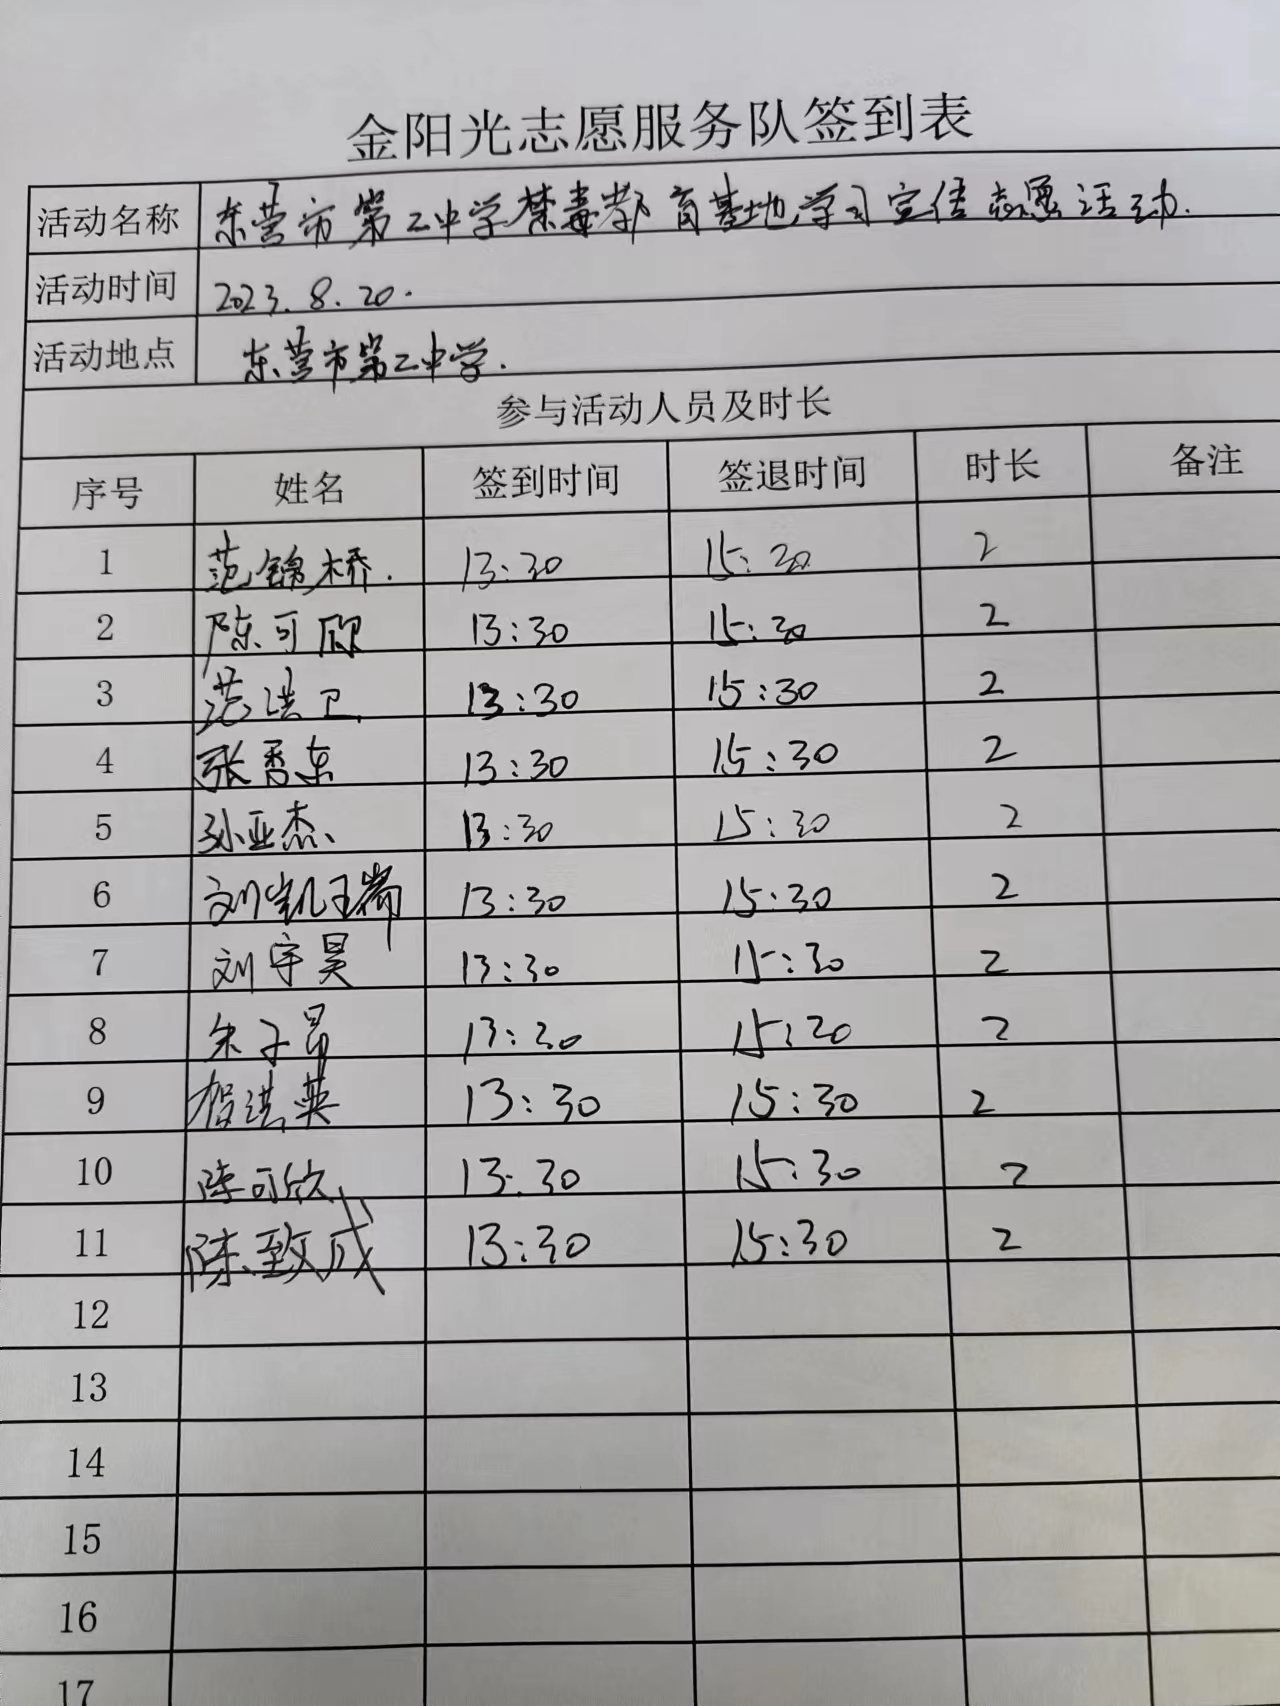 金阳光志愿服务队签到表
活动名称 东营市第二中学禁毒教育基地学习宣传志愿活动.
活动时间 2023.8.20.
活动地点 东营市第二中学.
参与活动人员及时长
序号 姓名 签到时间 签退时间 时长 备注
1 范锦桥. 13:30 15:30 2
2 陈可欣 13:30 15:30 2
3 范洪卫 13:30 15:30 2
4 张香东 13:30 15:30 2
5 孙亚杰 13:30 15:30 2
6 刘凯瑞 13:30 15:30 2
7 刘宇昊 13:30 15:30 2
8 朱子昂 13:30 15:30 2
9 洪英 13:30 15:30 2
10 陈可欣 13:30 15:30 2
11 陈致成 13:30 15:30 2
12
13
14
15
16
17